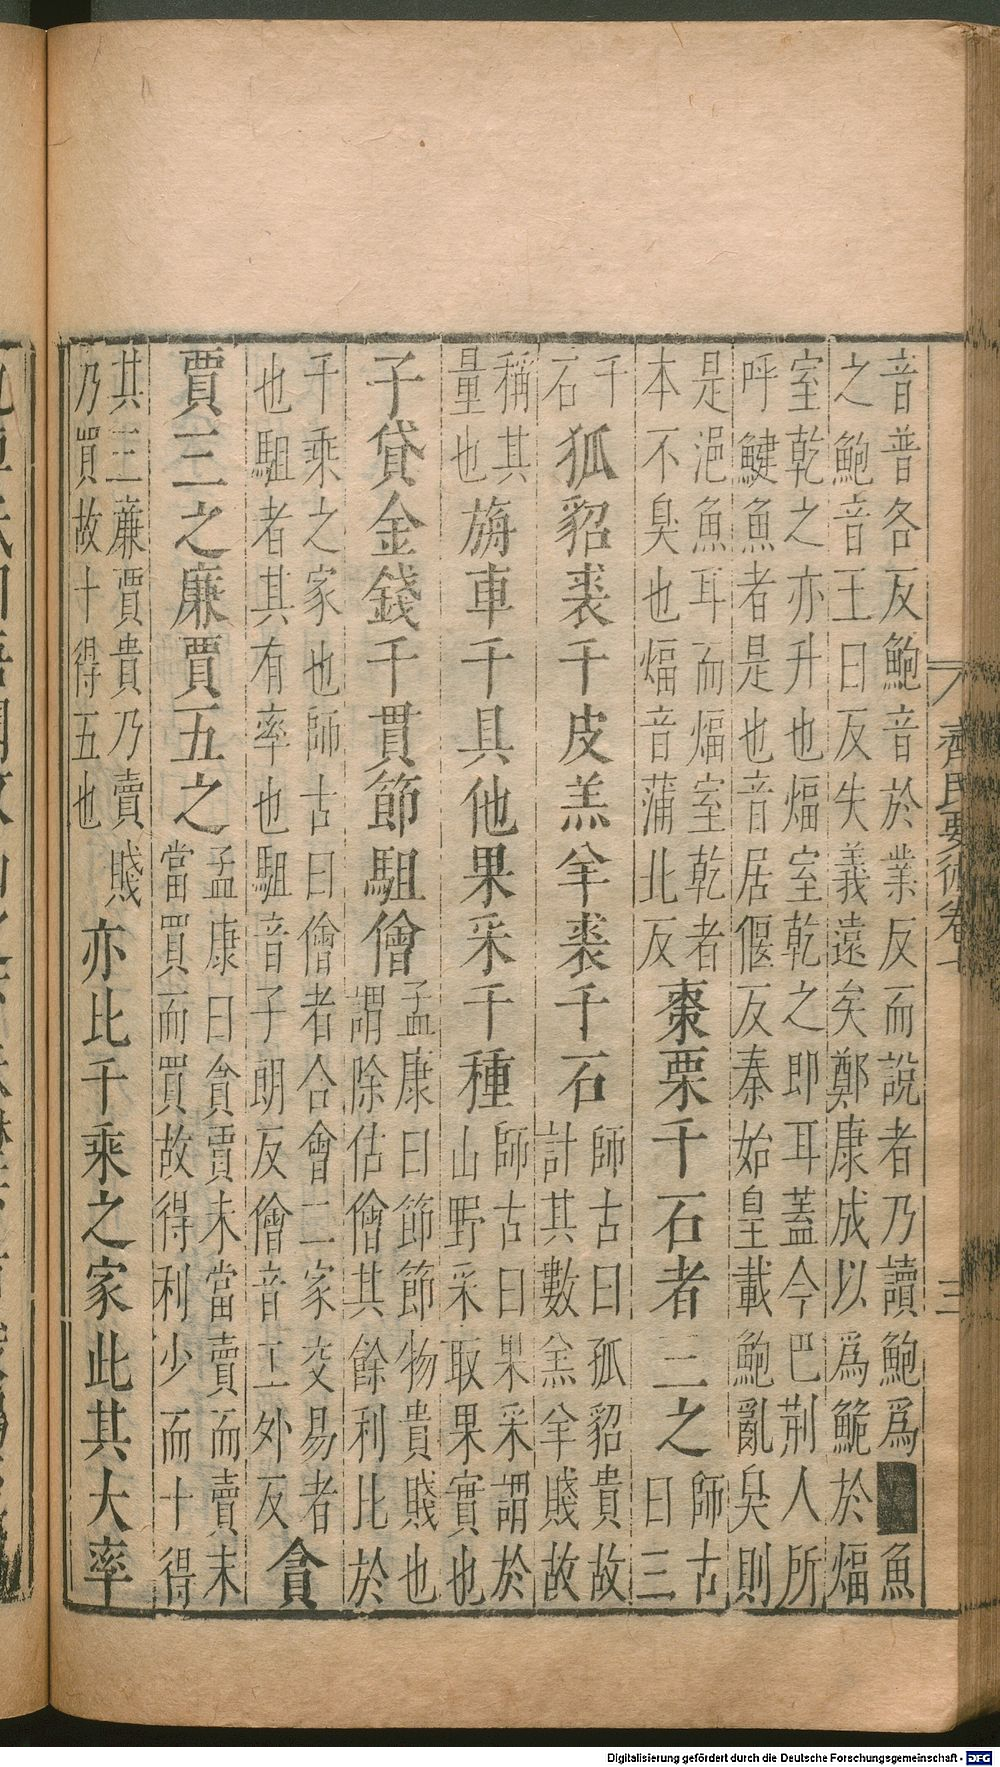 音普各反鮑音於業反而說者乃讀鮑爲魚
之鮑音王曰反失義遠矣鄭康成以爲鮠於煏
室乾之亦升也煏室乾之即耳蓋今巴荆人所
呼鰎魚者是也音居偃反秦始皇載鮑亂臭則
是浥魚耳而煏室乾者
本不臭也煏音蒲北反
棗栗千石者三之
師古
曰三
千
石
狐貂裘千皮羔羊裘千石
師古曰孤貂貴故
計其數羔羊賤故
稱其
量也
旃車千具他果采千種
師古曰果采謂於
山野采取果實也
子貸金錢千貫節駔儈
孟康曰節節物貴賤也
謂除估儈其餘利比於
千乘之家也師古曰儈者合會二家交易者
也駔者其有率也駔音子朗反儈音工外反
貪
賈三之廉賈五之
孟康曰貪賈未當賣而賣未
當買而買故得利少而十得
其三廉賈貴乃賣賤
乃買故十得五也
亦比千乘之家此其大率
齊民要術卷
三
Digitalisierung gefördert durch die Deutsche Forschungsgemeinschaft - DFG